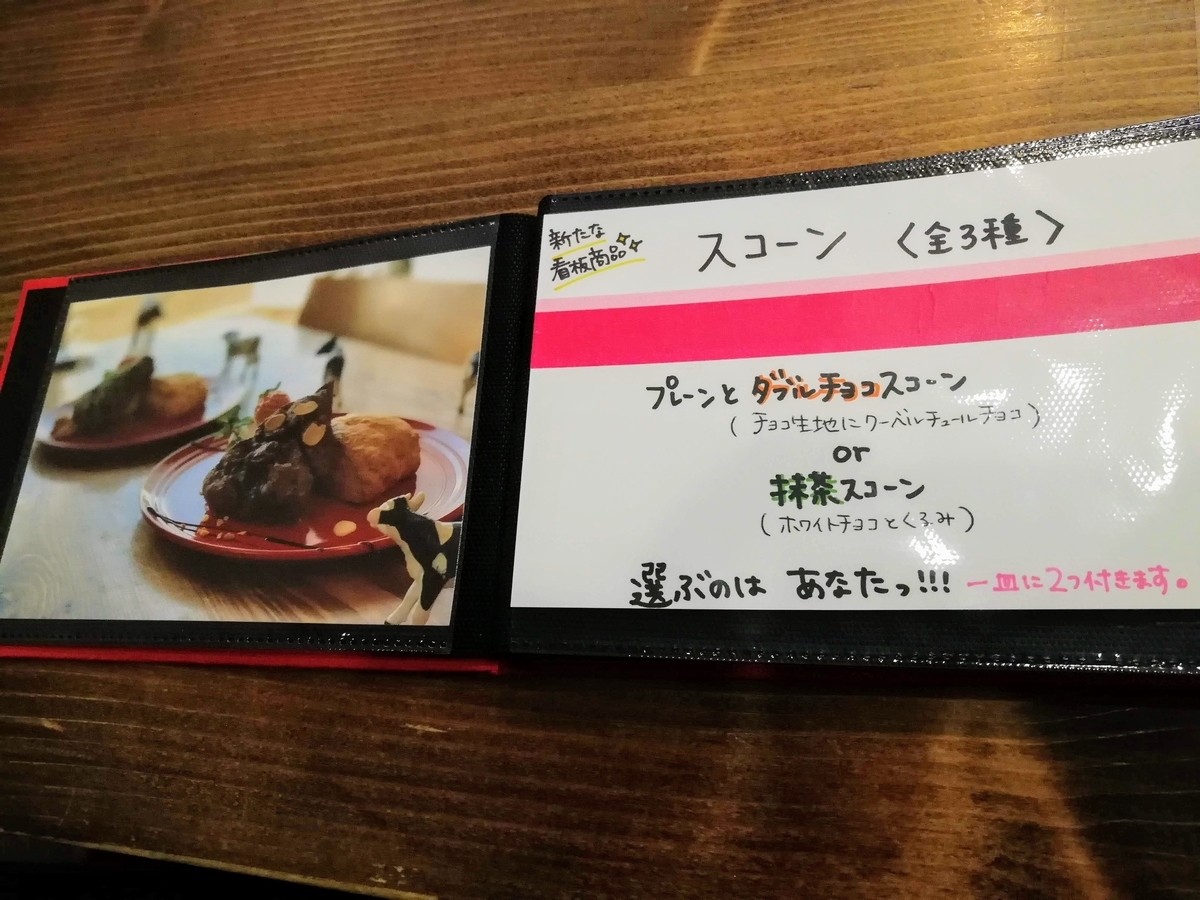 新たな
看板商品
スコーン 〈全3種〉
プレーンと ダブルチョコスコーン
(チョコ生地にクーベルチュールチョコ)
or
抹茶スコーン
(ホワイトチョコとくるみ)
選ぶのは あなたっ!!! 一皿に2つ付きます。